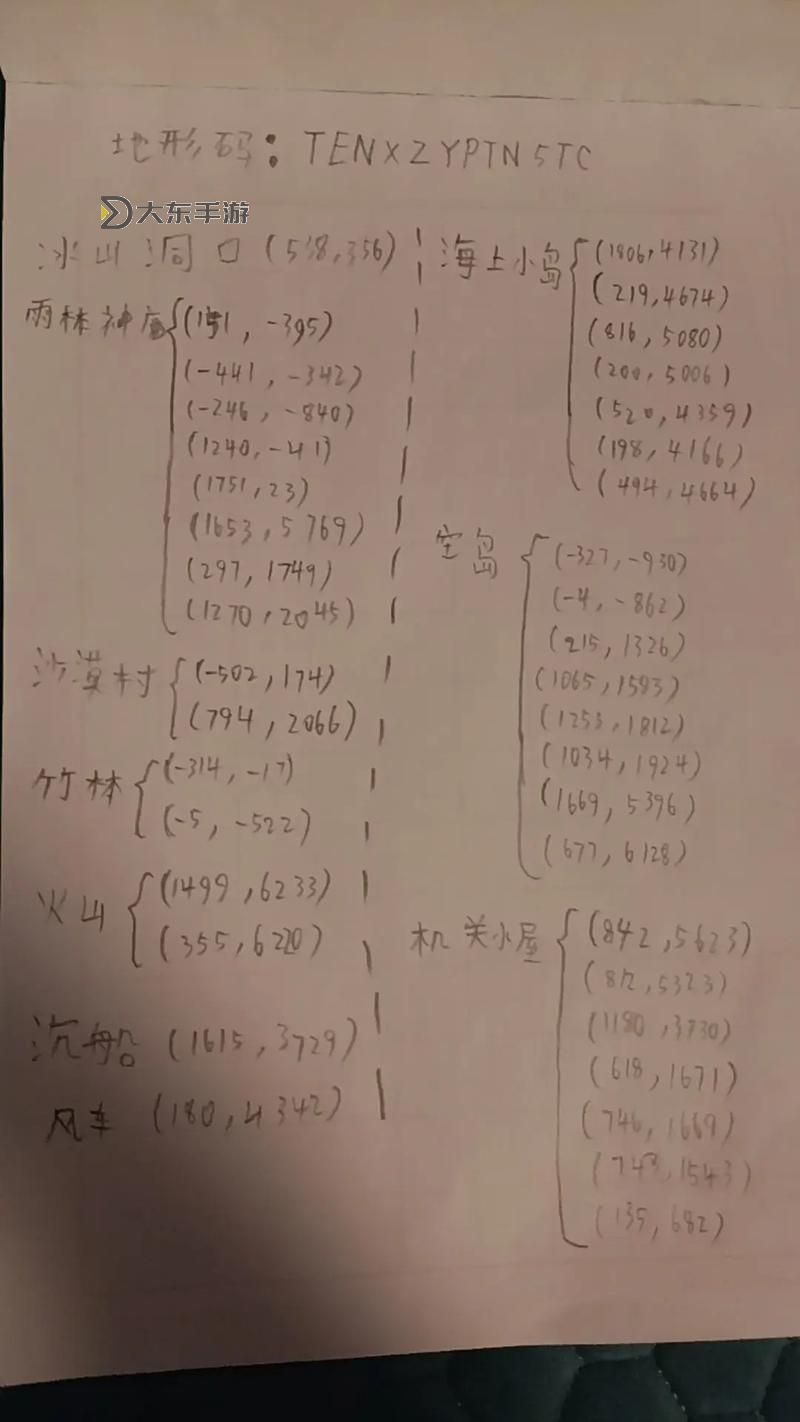 地形码：TENXZYPTN5TC
大东手游
冰山洞口 (518,356)
雨林神庙 (151, -395)
(-441, -342)
(-246, -840)
(1240, -41)
(1751, 23)
(1653, 5769)
(297, 1749)
(1270, 2045)
沙漠村 (-502, 174)
(794, 2066)
竹林 (-314, -17)
(-5, -522)
火山 (1499, 6233)
(355, 6220)
沉船 (1615, 3729)
风车 (180, 4342)
海上小岛 (1806, 4131)
(219, 4674)
(816, 5080)
(200, 5006)
(520, 4359)
(198, 4166)
(494, 4664)
空岛 (-327, -930)
(-4, -862)
(215, 1326)
(1065, 1593)
(1253, 1812)
(1034, 1924)
(1669, 5396)
(677, 6128)
机关小屋 (842, 5623)
(812, 5323)
(1180, 3730)
(618, 1671)
(746, 1669)
(743, 1543)
(135, 682)